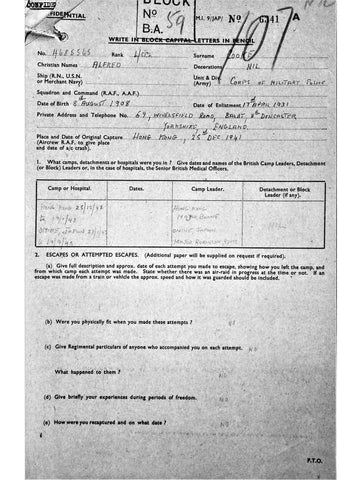 CONFIDENTIAL
BLOCK
Nº 59
B.A.
M.I. 9/JAP/ Nº 6341 A
107
WRITE IN BLOCK CAPITAL LETTERS IN PENCIL
No. Rank L/CPL Surname
Christian Names ALFRED Decorations NIL
Ship (R.N., U.S.N. or Merchant Navy)
Unit & Div. (Army) CORPS OF MILITARY POLICE
Squadron and Command (R.A.F., A.A.F.)
Date of Birth 8 AUGUST 1908 Date of Enlistment 17th APRIL 1931
Private Address and Telephone No. 69, ROAD, BALBY, DONCASTER,
YORKSHIRE, ENGLAND.
Place and Date of Original Capture HONG KONG, 25th DEC. 1941
(Aircrew R.A.F. to give place
and date of a/c crash).
1. What camps, detachments or hospitals were you in? Give dates and names of the British Camp Leaders, Detachment
(or Block) Leaders or, in the case of hospitals, the Senior British Medical Officers.
Camp or Hospital. Dates. Camp Leader. Detachment or Block Leader (if any).
HONG KONG HONG KONG
MAJOR
JAPAN JAPAN
MAJOR
NIL
2. ESCAPES OR ATTEMPTED ESCAPES. (Additional paper will be supplied on request if required).
(a) Give full description and approx. date of each attempt you made to escape, showing how you left the camp, and
from which camp each attempt was made. State whether there was an air-raid in progress at the time or not. If an
escape was made from a train or vehicle the approx. speed and how it was guarded should be included.
(b) Were you physically fit when you made these attempts?
(c) Give Regimental particulars of anyone who accompanied you on each attempt. NO
What happened to them? NO
(d) Give briefly your experiences during periods of freedom. NO
(e) How were you recaptured and on what date? NO
P.T.O.